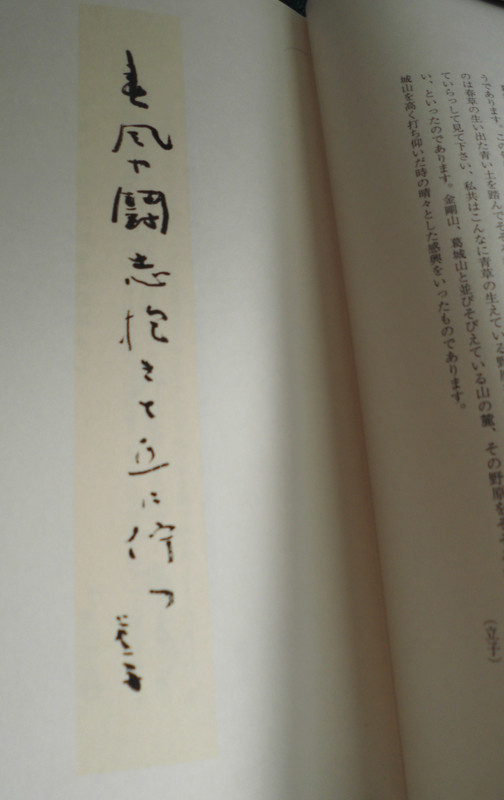 うであります。この
のは春草の生い出た青い土を踏んで
ていらっして見て下さい、私共はこんなに青草の生えている野原
い、といったのであります。金剛山、葛城山と並びそびえている山の麓、その野原をそ
城山を高く打ち仰いだ時の晴々とした感興をいったものであります。
(立子)
春風や闘志抱きて丘に佇つ 虚子